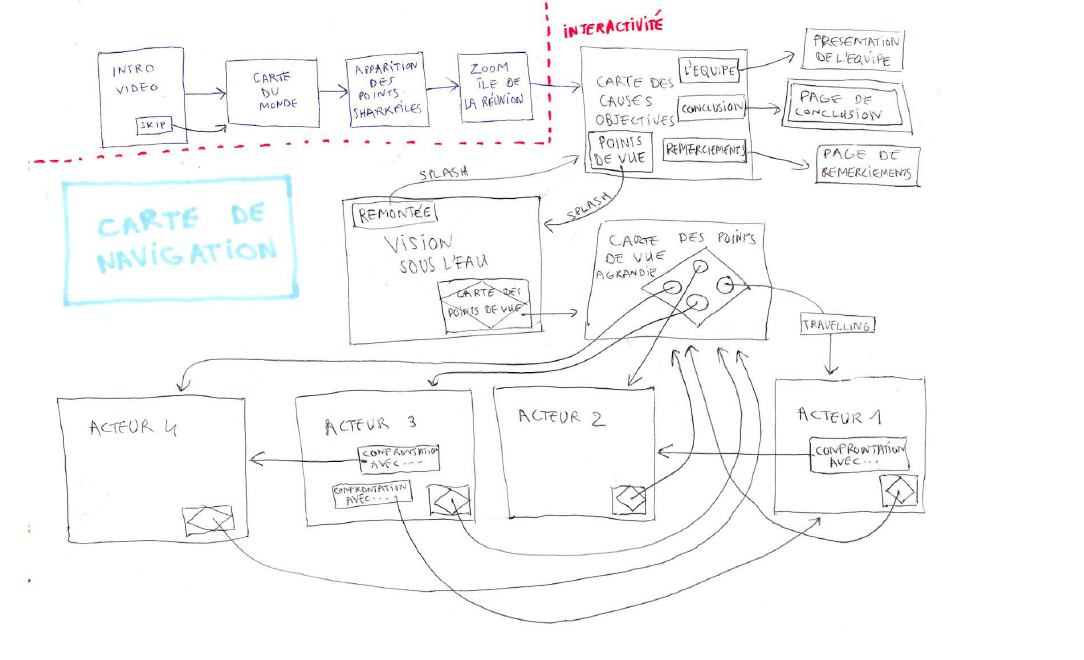 INTERACTIVITÉ
INTRO
VIDEO
SKIP
CARTE
DU
MONDE
APPARITION
DES
POINTS
SHARKFILES
ZOOM
ÎLE DE
LA RÉUNION
CARTE DES
CAUSES
OBJECTIVES
L'EQUIPE
CONCLUSION
POINTS
DE VUE
REMERCIEMENTS
PRESENTATION
DE L'EQUIPE
PAGE DE
CONCLUSION
PAGE DE
REMERCIEMENTS
CARTE DE
NAVIGATION
SPLASH
SPLASH
REMONTÉE
VISION
SOUS L'EAU
CARTE DES
POINTS DE VUE
CARTE DES POINTS
DE VUE
AGRANDIE
TRAVELLING
ACTEUR 4
ACTEUR 3
CONFRONTATION
AVEC...
CONFRONTATION
AVEC....
ACTEUR 2
ACTEUR 1
CONFRONTATION
AVEC...